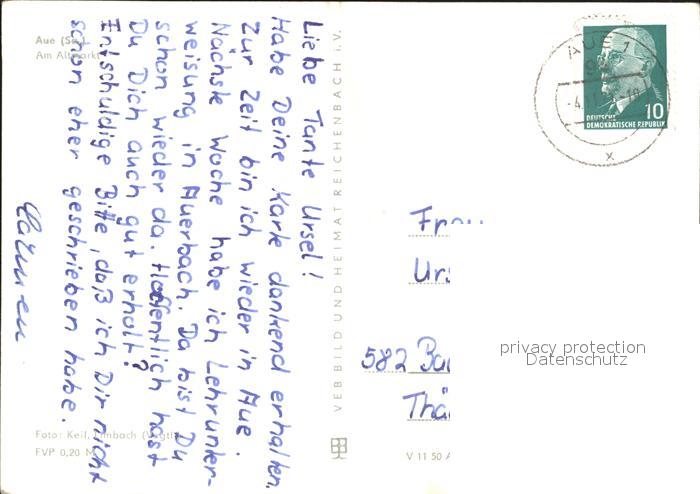 Aue (Sa.)
Am Altmarkt
Liebe Tante Ursel!
Habe Deine Karte dankend erhalten.
Zur Zeit bin ich wieder in Aue.
Nächste Woche habe ich Lehrunter-
weisung in Auerbach. Da bist Du
schon wieder da. Hoffentlich hast
Du Dich auch gut erholt?
Entschuldige Bitte, daß ich Dir nicht
schon eher geschrieben habe.
Foto: Keil, Limbach (Vogtl.)
FVP 0,20 M
VEB BILD UND HEIMAT REICHENBACH i.V.
V 11 50 A
AUE
1
DEUTSCHE
DEMOKRATISCHE REPUBLIK
10
x
582 Ba
Thä
privacy protection
Datenschutz